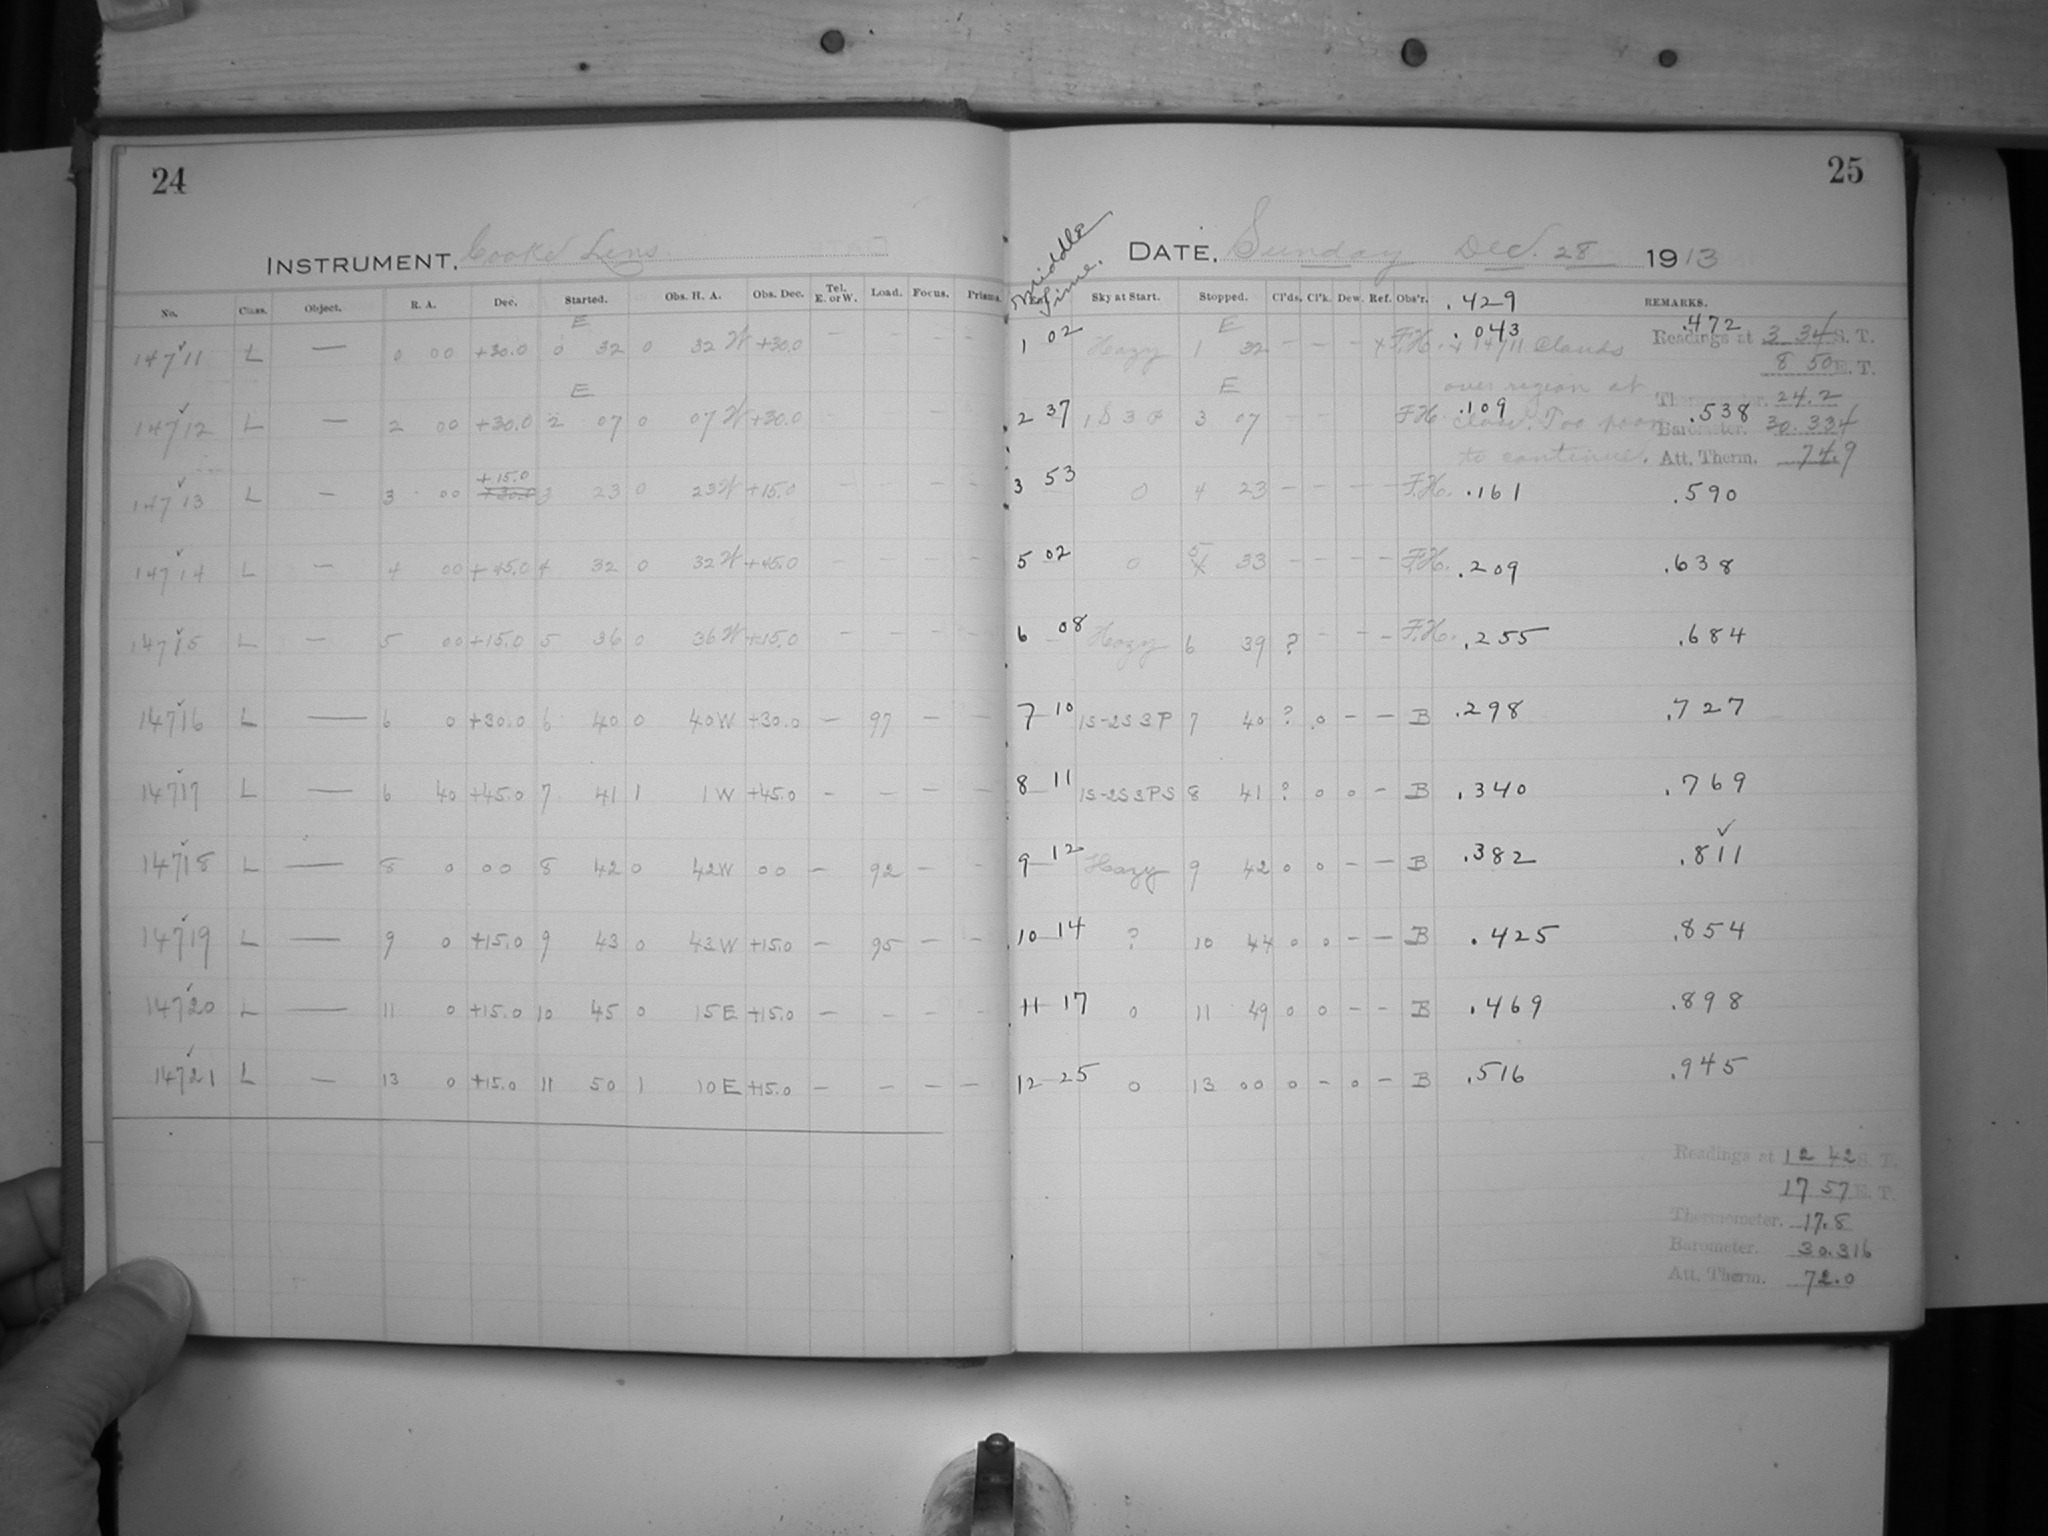 24
INSTRUMENT. Cooke Lens
No. Class. Object. R. A. Dec. Started. Obs. H. A. Obs. Dec. Tel. E. or W. Load. Focus. Prisms.
E
14711 L — 0 00 +30.0 0 32 0 32 W +30.0 — — — —
E
14712 L — 2 00 +30.0 2 07 0 07 W +30.0 — —
+15.0
14713 L — 3 00 +30.0 3 23 0 23 W +15.0 — — — —
14714 L — 4 00 +45.0 4 32 0 32 W +45.0 — — — —
14715 L — 5 00 +15.0 5 36 0 36 W +15.0 — — — —
14716 L — 6 0 +30.0 6 40 0 40 W +30.0 — 97 — —
14717 L — 6 40 +45.0 7 41 1 1 W +45.0 — — — —
14718 L — 8 0 0 0 8 42 0 42 W 0 0 — 92 — —
14719 L — 9 0 +15.0 9 43 0 43 W +15.0 — 95 — —
14720 L — 11 0 +15.0 10 45 0 15 E +15.0 — — — —
14721 L — 13 0 +15.0 11 50 1 10 E +15.0 — — — —
25
Middle of Time.
DATE. Sunday Dec. 28 1913
Sky at Start. Stopped. Cl'ds. Cl'k. Dew. Ref. Obs'r. .429 REMARKS.
E
1 02 Hazy 1 32 — — — x F.H. .043 x 14711 Clouds .472
over region at
E
2 37 1S 3 P 3 07 — — F.H. .109 close. Too poor .538
to continue.
3 53 0 4 23 — — — — F.H. .161 .590
5 02 0 5 33 — — — — F.H. .209 .638
6 08 Hazy 6 39 ? — — — F.H. .255 .684
7 10 1S-2S 3P 7 40 ? 0 — — B .298 .727
8 11 1S-2S 3PS 8 41 ? 0 0 — B .340 .769
9 12 Hazy 9 42 0 0 — — B .382 .811
10 14 ? 10 44 0 0 — — B .425 .854
11 17 0 11 49 0 0 — — B .469 .898
12 25 0 13 00 0 — 0 — B .516 .945
Readings at 3 34 S. T.
8 50 E. T.
Thermometer. 24.2
Barometer. 30.334
Att. Therm. 74.9
Readings at 12 42 S. T.
17 57 E. T.
Thermometer. 17.8
Barometer. 30.316
Att. Therm. 72.0